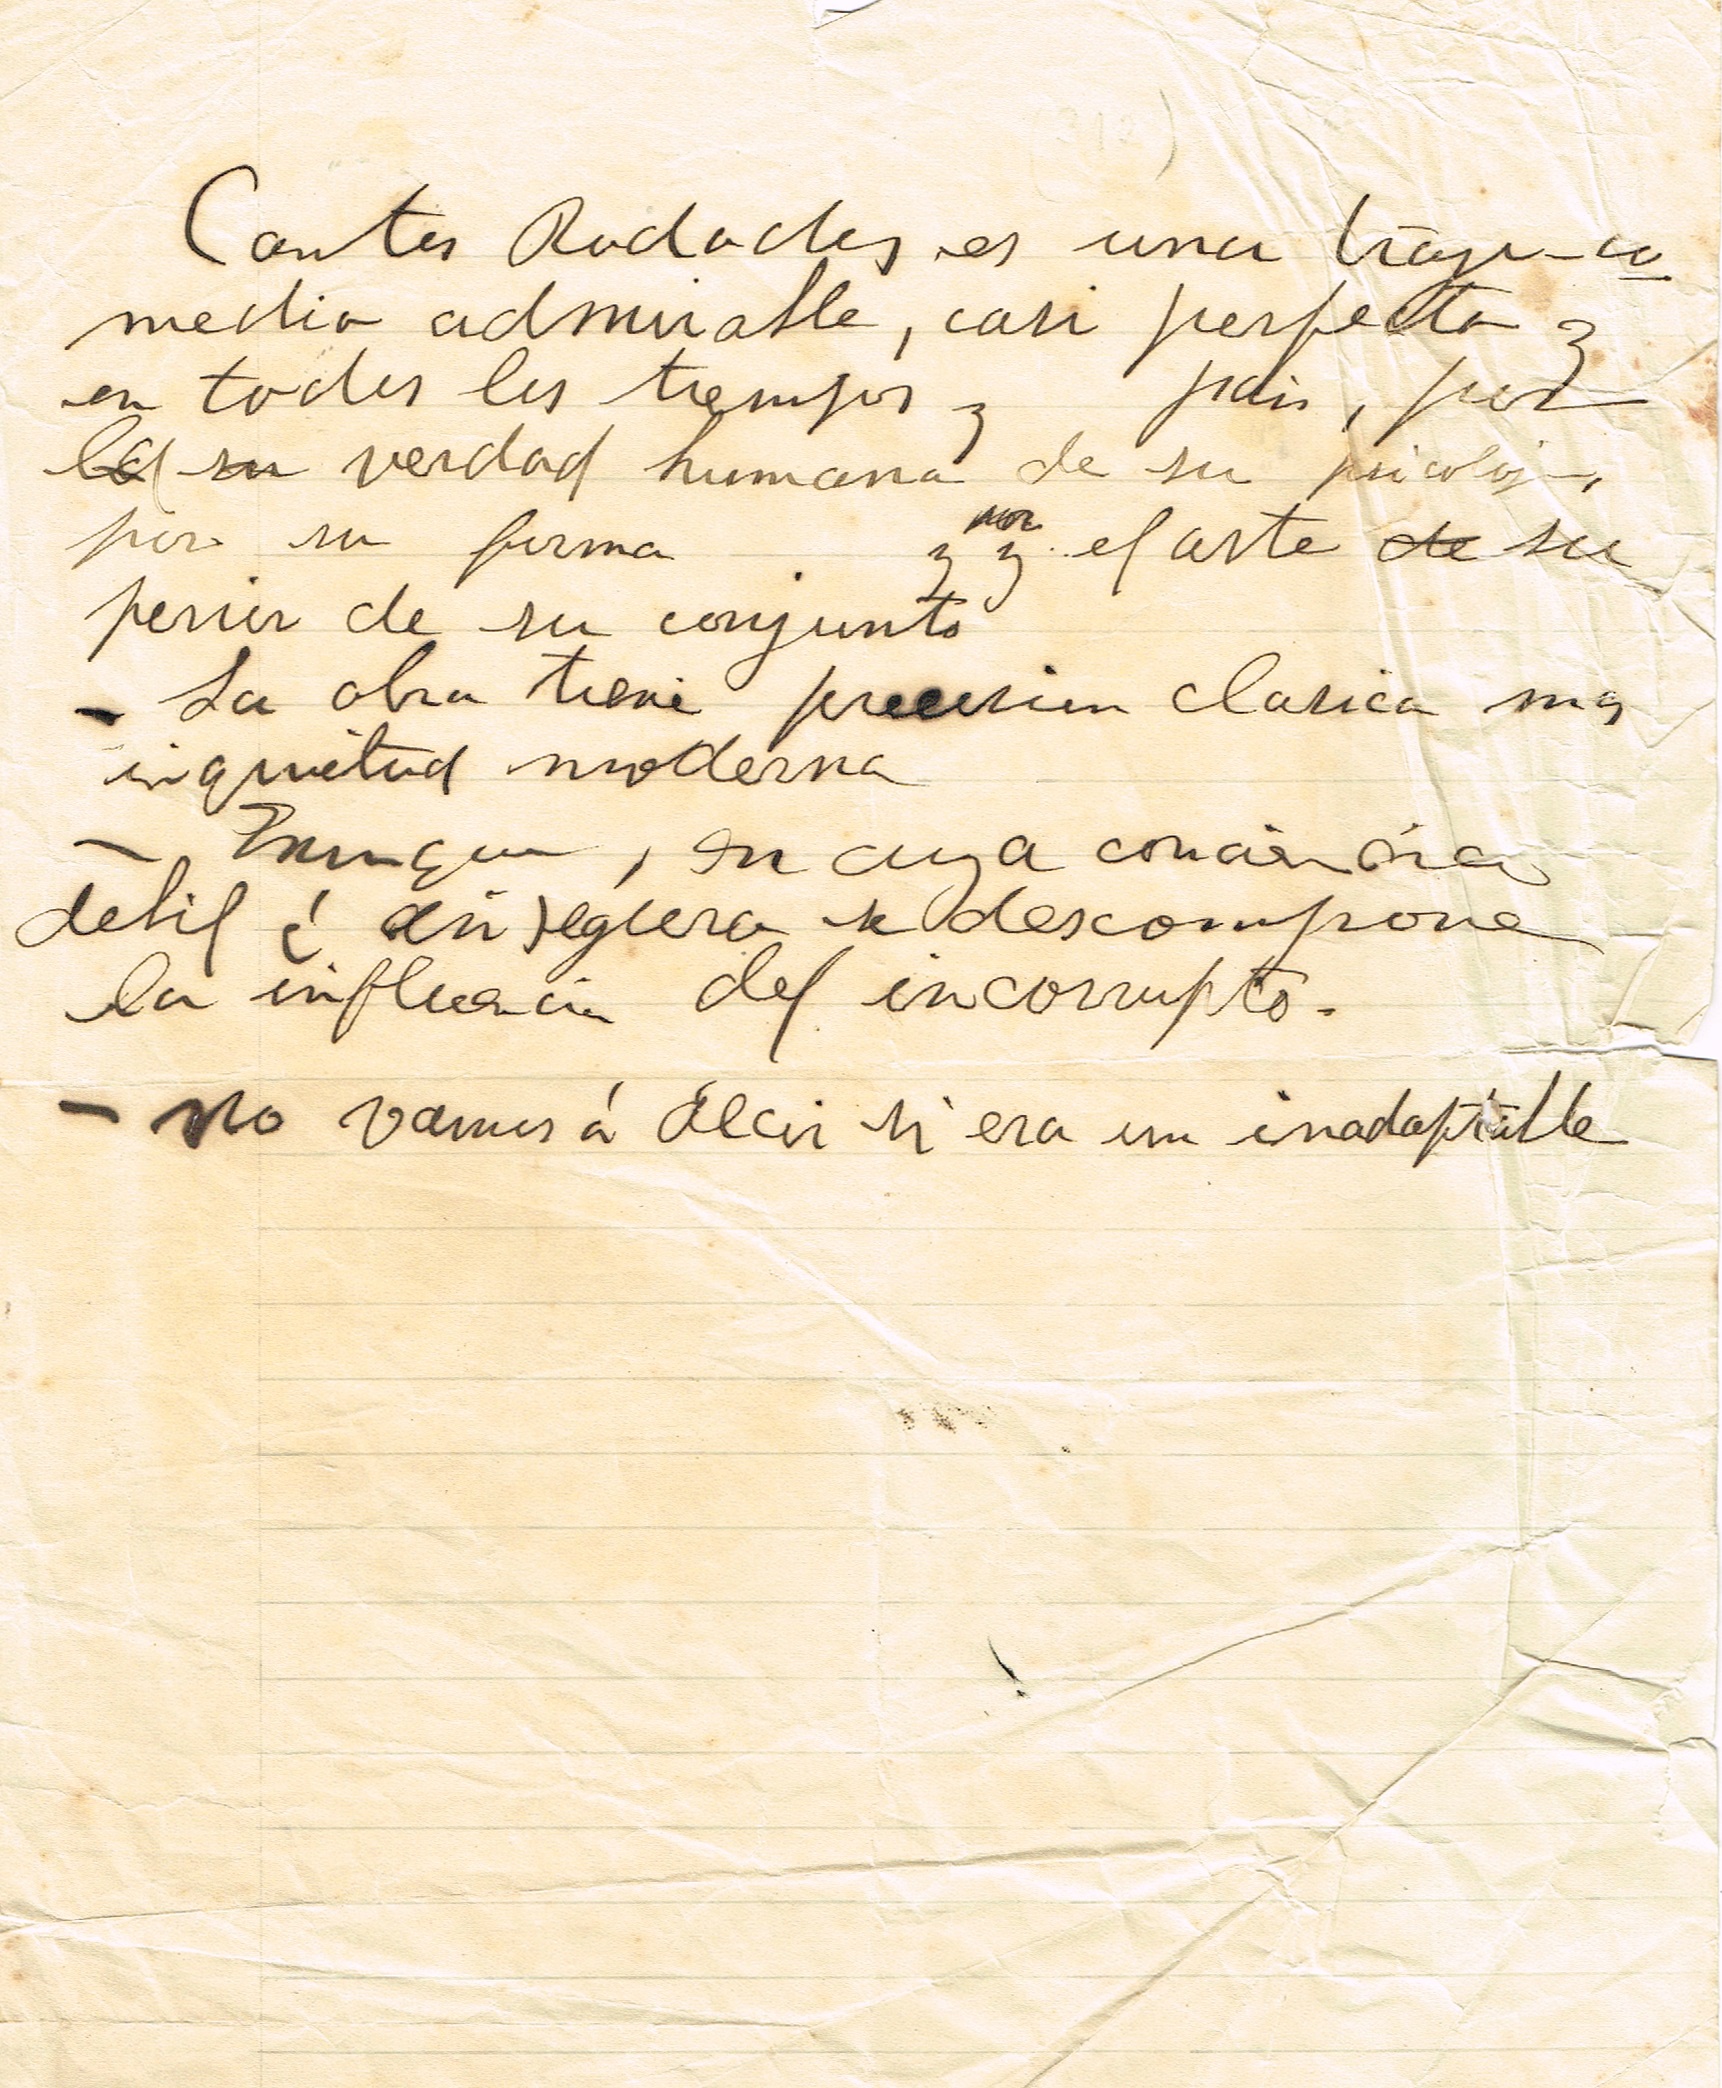 Cantos Rodados es una tragi-co
media admirable, casi perfecta y
en todos los tiempos y país, por
la su verdad humana de su psicología,
por su forma y y por el arte de su
perior de su conjunto
- La obra tiene precision clasica mas
inquietud moderna
- en cuya conciencia
debil é se descompone
la influencia del incorrupto.
- No vamos á decir si era un inadaptable